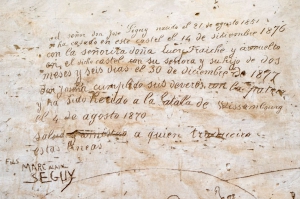 el señor don José Seguy nacido el 21 de agosto 1851
se ha casado en este castel el 14 de setiembre 1876
con la señorita doña Luisa Fraiche y
con el vida castel con su señora y su hijo de dos
meses y seis dias el 30 de diciembre de 1877
cumplido sus deberes con la patria
y ha sido Herido a la Batala de Wissembourg
el 4 de agosto 1870
Salud a quien
estas lineas
FILS MARC
SEGUY